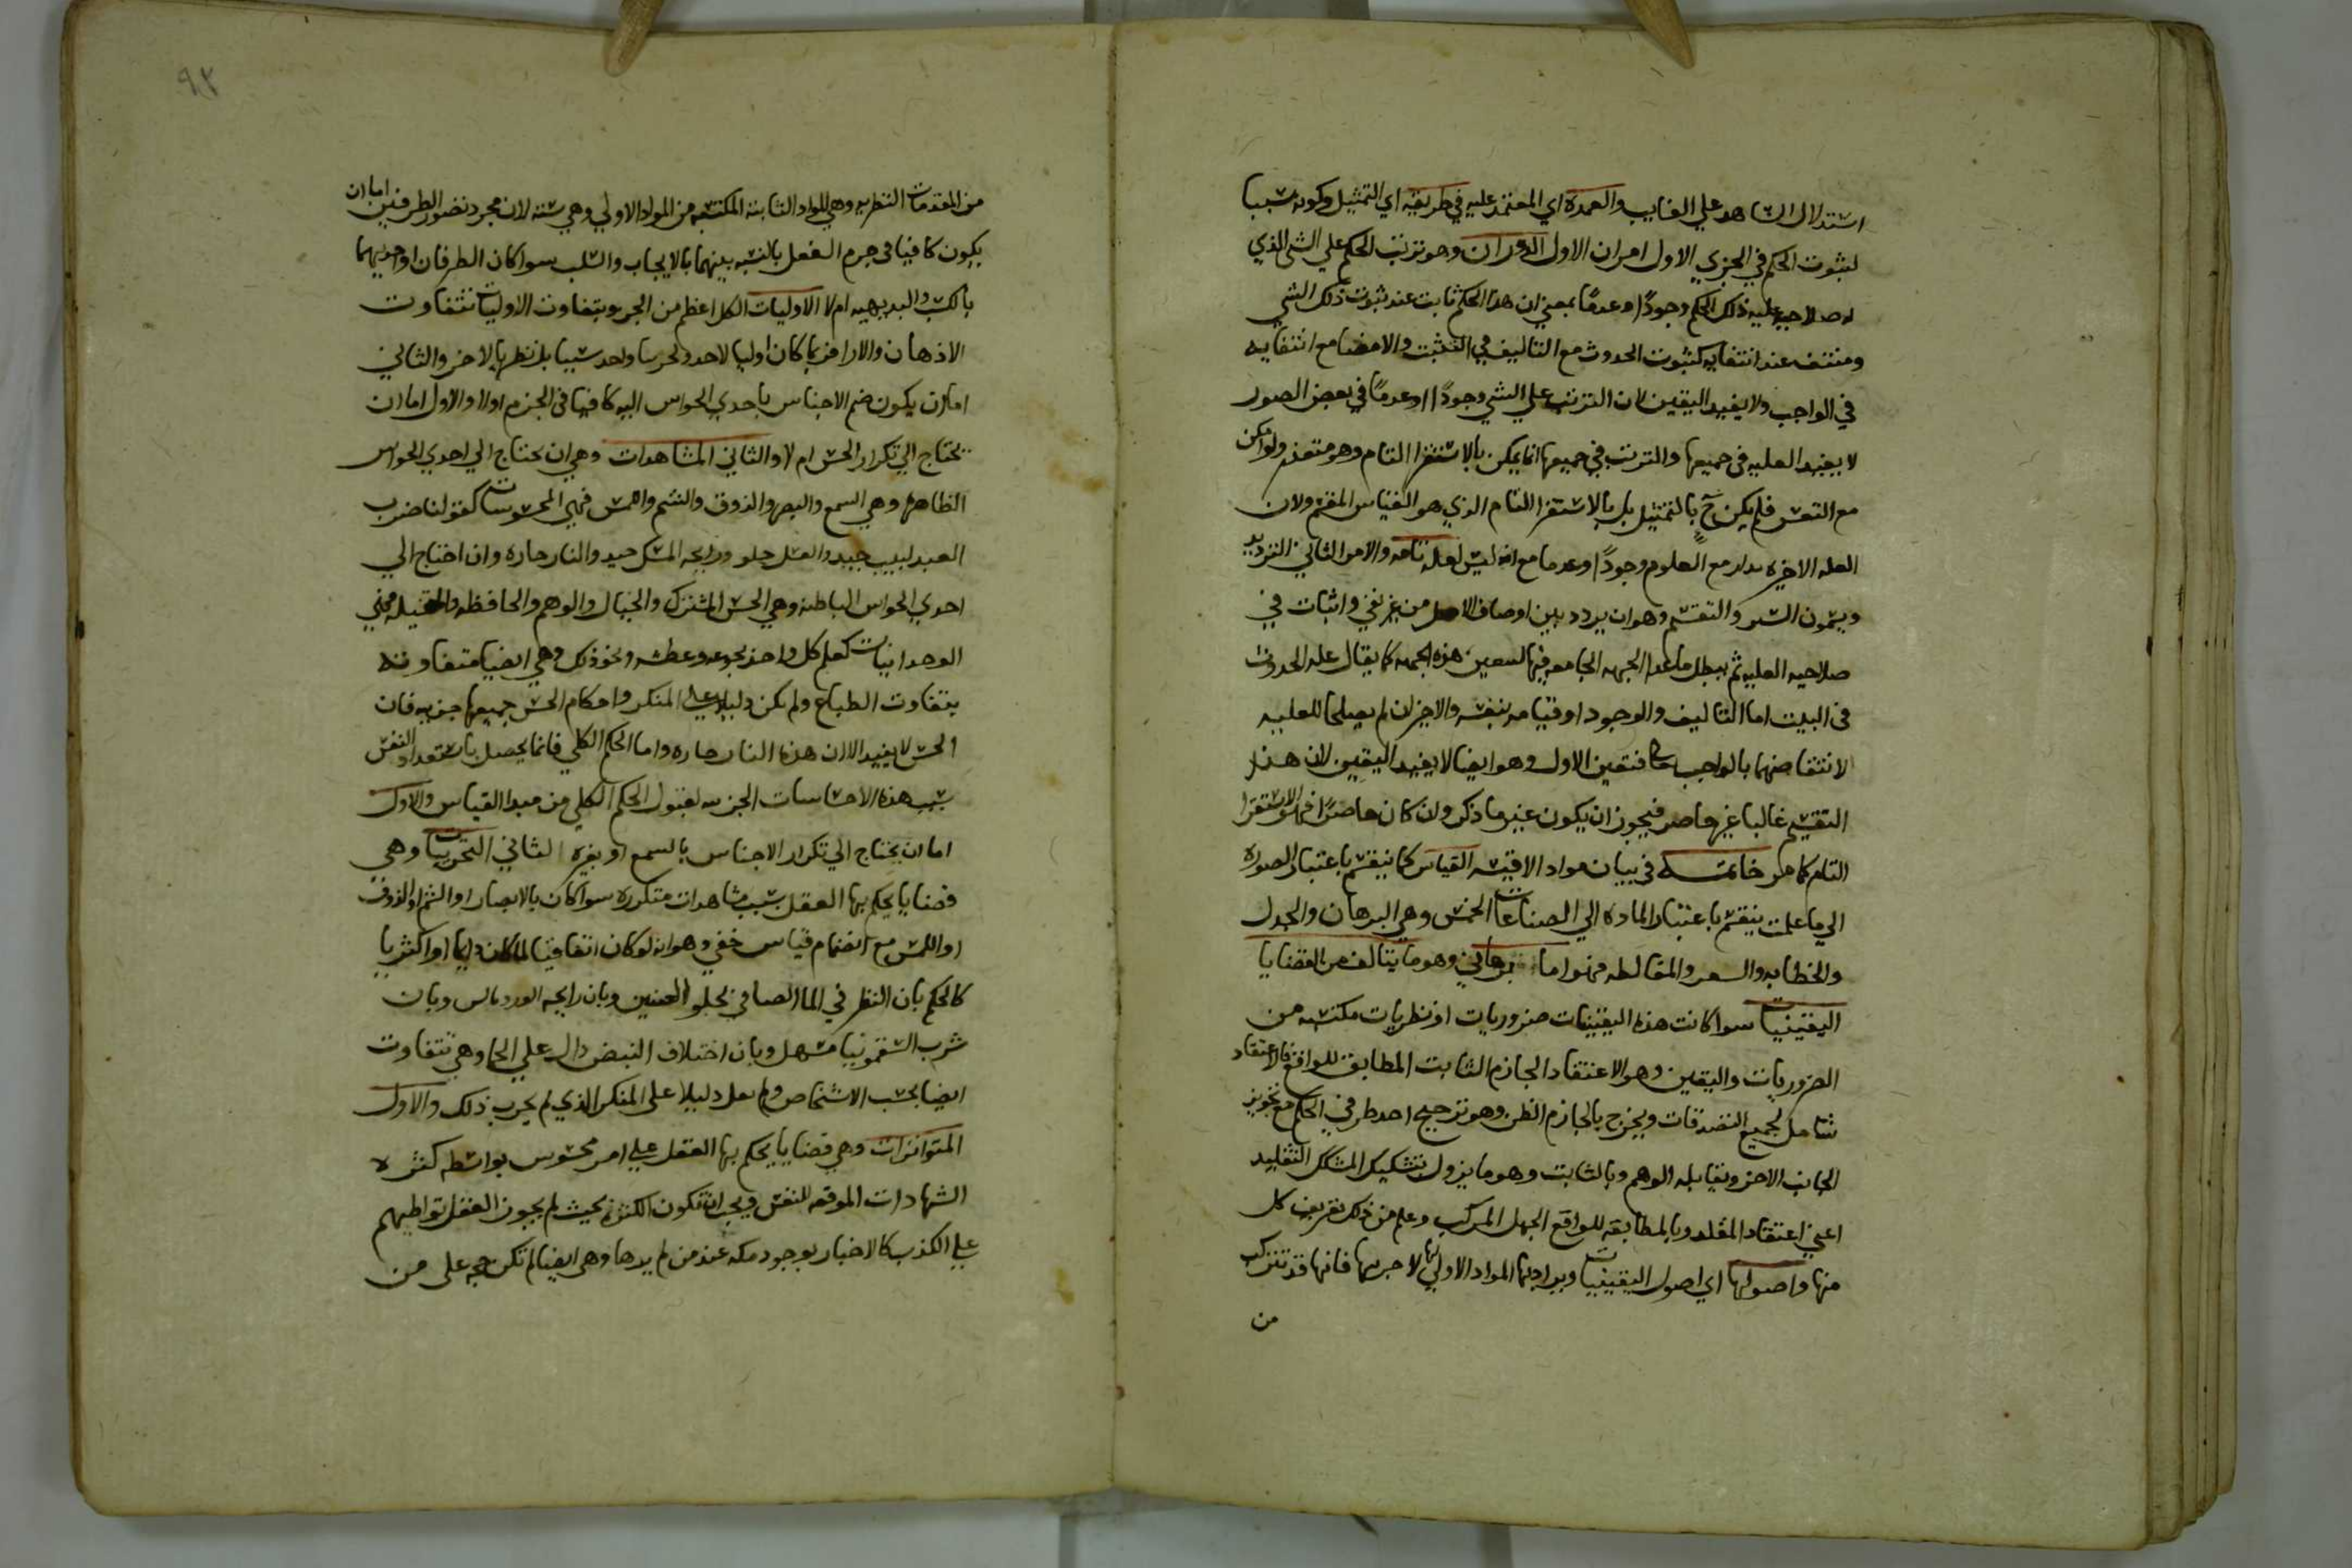 استدلال الشاهد علي الغايب والعمدة اي المعتمد عليه في طريقه اي التمثيل وكونه سببا
لثبوت الحكم في الجزي الاول امران الاول الدوران وهو ترتب الحكم علي الشي الذي
له صلاحيه عليه ذلك الحكم وجودًا وعدمًا بمعني ان هذا الحكم ثابت عند ثبوت ذلك الشي
ومنتف عند انتفايه كثبوت الحدوث مع التاليف في البيت والامضا مع انتفايه
في الواجب ولا يفيد اليقين لان الترتب علي الشي وجودًا وعدمًا في بعض الصور
لا يفيد العليه في جميعها والترتب في جميعها انما يمكن بالاستقرا التام وهو متعذر ولو امكن
مع التعسر فلم يكن ح بالتمثيل بل بالاستقرا التام الذي هو القياس المقسم ولان
العله الاخيره مدار مع المعلوم وجودًا وعدما مع انه ليس لعله تامه والامر الثاني الترديد
ويسمون السبر والتقسيم وهو ان يردد بين اوصاف الاصل من غير نفي واثبات في
صلاحيه العليه ثم يبطل ما عدا الجهه الجامعه فيها لتتعين هذه الجهه كما يقال عله الحدوث
في البيت اما التاليف والوجود او قيامه بنفسه والاخيران لم يصلحا للعليه
لانتقاضهما بالواجب تعالي فتعين الاول وهو ايضا لا يفيد اليقين لان هذا
التقسيم غالبا غير حاصر فيجوز ان يكون غير ما ذكر ولان كان حاصرًا فهو الاستقرا
التام كما مر خاتمة في بيان مواد الاقيسه القياس كما ينقسم باعتبار الصوره
الي ما علمت ينقسم باعتبار الماده الي الصناعات الخمس وهي البرهان والجدل
والخطابه والشعر والمغالطه فهو اما برهاني وهو ما يتالف من القضايا
اليقينيات سوا كانت هذه اليقينيات ضروريات او نظريات مكتسبه من
الضروريات واليقين وهو الاعتقاد الجازم الثابت المطابق للواقع فالاعتقاد
شامل لجميع التصدقات ويخرج بالجازم الظن وهو ترجيح احد طرفي الحكم مع تجويز
الجانب الاخر ويقابله الوهم وبالثابت وهو ما يزول بتشكيك المشكك التقليد
اعني اعتقاد المقلد وبالمطابقه للواقع الجهل المركب وعلم من ذلك تعريف كل
منها واصولها اي اصول اليقينيات ويراد بها المواد الاولي لها لا جزيها فانها قد تتركب
من
٩٢
من المقدمات النظريه وهي المواد الثانيه المكتسبه من المواد الاولي وهي سته لان مجرد تصور الطرفين اما ان
يكون كافيا في جزم العقل بالنسبه بينهما بالايجاب والسلب سوا كان الطرفان او احديهما
بالكسب والبديهيه ام لا الاوليات الكل اعظم من الجزو ويتفاوت الاوليات بتفاوت
الاذهان والارا فربما كان اوليا لاحد بل نظريا لاخر والثاني
اما ان يكون ضم الاجناس باحدي الحواس اليه كافيا في الجزم اولا والاول اما ان
يحتاج الي تكرار الحس ام لا والثاني المشاهدات وهي ان يحتاج الي احدي الحواس
الظاهره وهي السمع والبصر والذوق والشم واللمس فهي المحسوسات كقولنا ضرب
العبد لبيب جيد والعسل حلو ورايحه المسك جيد والنار حاره وان احتاج الي
احدي الحواس الباطنه وهي الحس المشترك والخيال والوهم والحافظه والمتخيله فهي
الوجدانيات كعلم كل واحد بجوعه وعطشه ونحو ذلك وهي ايضا متفاوته
بتفاوت الطباع ولم يكن دليلا علي المنكر واحكام الحس جميعها جزيه فان
الحس لا يفيد الا ان هذه النار حاره واما الحكم الكلي فانما يحصل باستعداد النفس
بسبب هذه الاحساسات الجزيه لقبول الحكم الكلي من مبدا القياس والاول
اما ان يحتاج الي تكرار الاجناس بالسمع او بغيره الثاني التجربيات وهي
قضايا يحكم بها العقل بسبب مشاهدات متكرره سوا كان بالابصار او الشم او الذوق
او اللمس مع انضمام قياس خفي وهو انه لو كان اتفاقيا لما كان دايما او اكثريا
كالحكم بان النظر في الما الصافي يجلو العينين وبان رايحه الورد وبان
شرب السقمونيا مسهل وبان اختلاف النبض دال علي الحما وهي تتفاوت
ايضا بحسب الاشخاص ولم تعد دليلا علي المنكر الذي لم يجرب ذلك والاول
المتواترات وهي قضايا يحكم بها العقل علي امر محسوس بواسطه كثره
الشهادات الموقعه للنفس ويجب ان تكون الكثره بحيث لم يجوز العقل تواطيهم
علي الكذب كالاخبار بوجود مكه عند من لم يرها وهي ايضا لم تكن حجه علي من